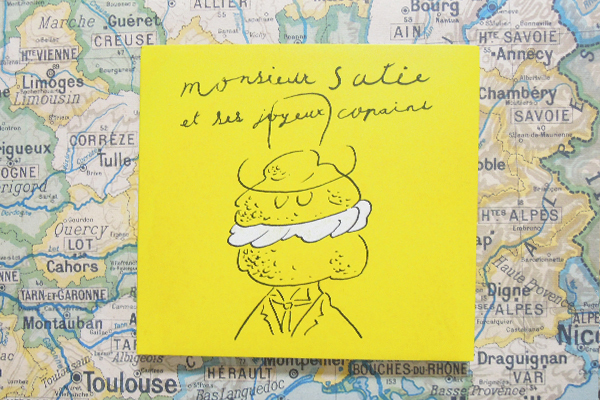 monsieur Satie
et ses joyeux copains
Marche
Guéret
CREUSE
ALLIER
Bourg
AIN
Hte SAVOIE
Annecy
Hte VIENNE
Limoges
Limousin
Chambéry
SAVOIE
CORRÈZE
Tulle
Brive
Quercy
LOT
Cahors
TARN-ET-GARONNE
Montauban
Toulouse
Albigeois
HÉRAULT
Bas Languedoc
Montpellier
BOUCHES-DU-RHÔNE
Basse Provence
Htes ALPES
Haute Provence
Digne
ALPES
Draguignan
VAR